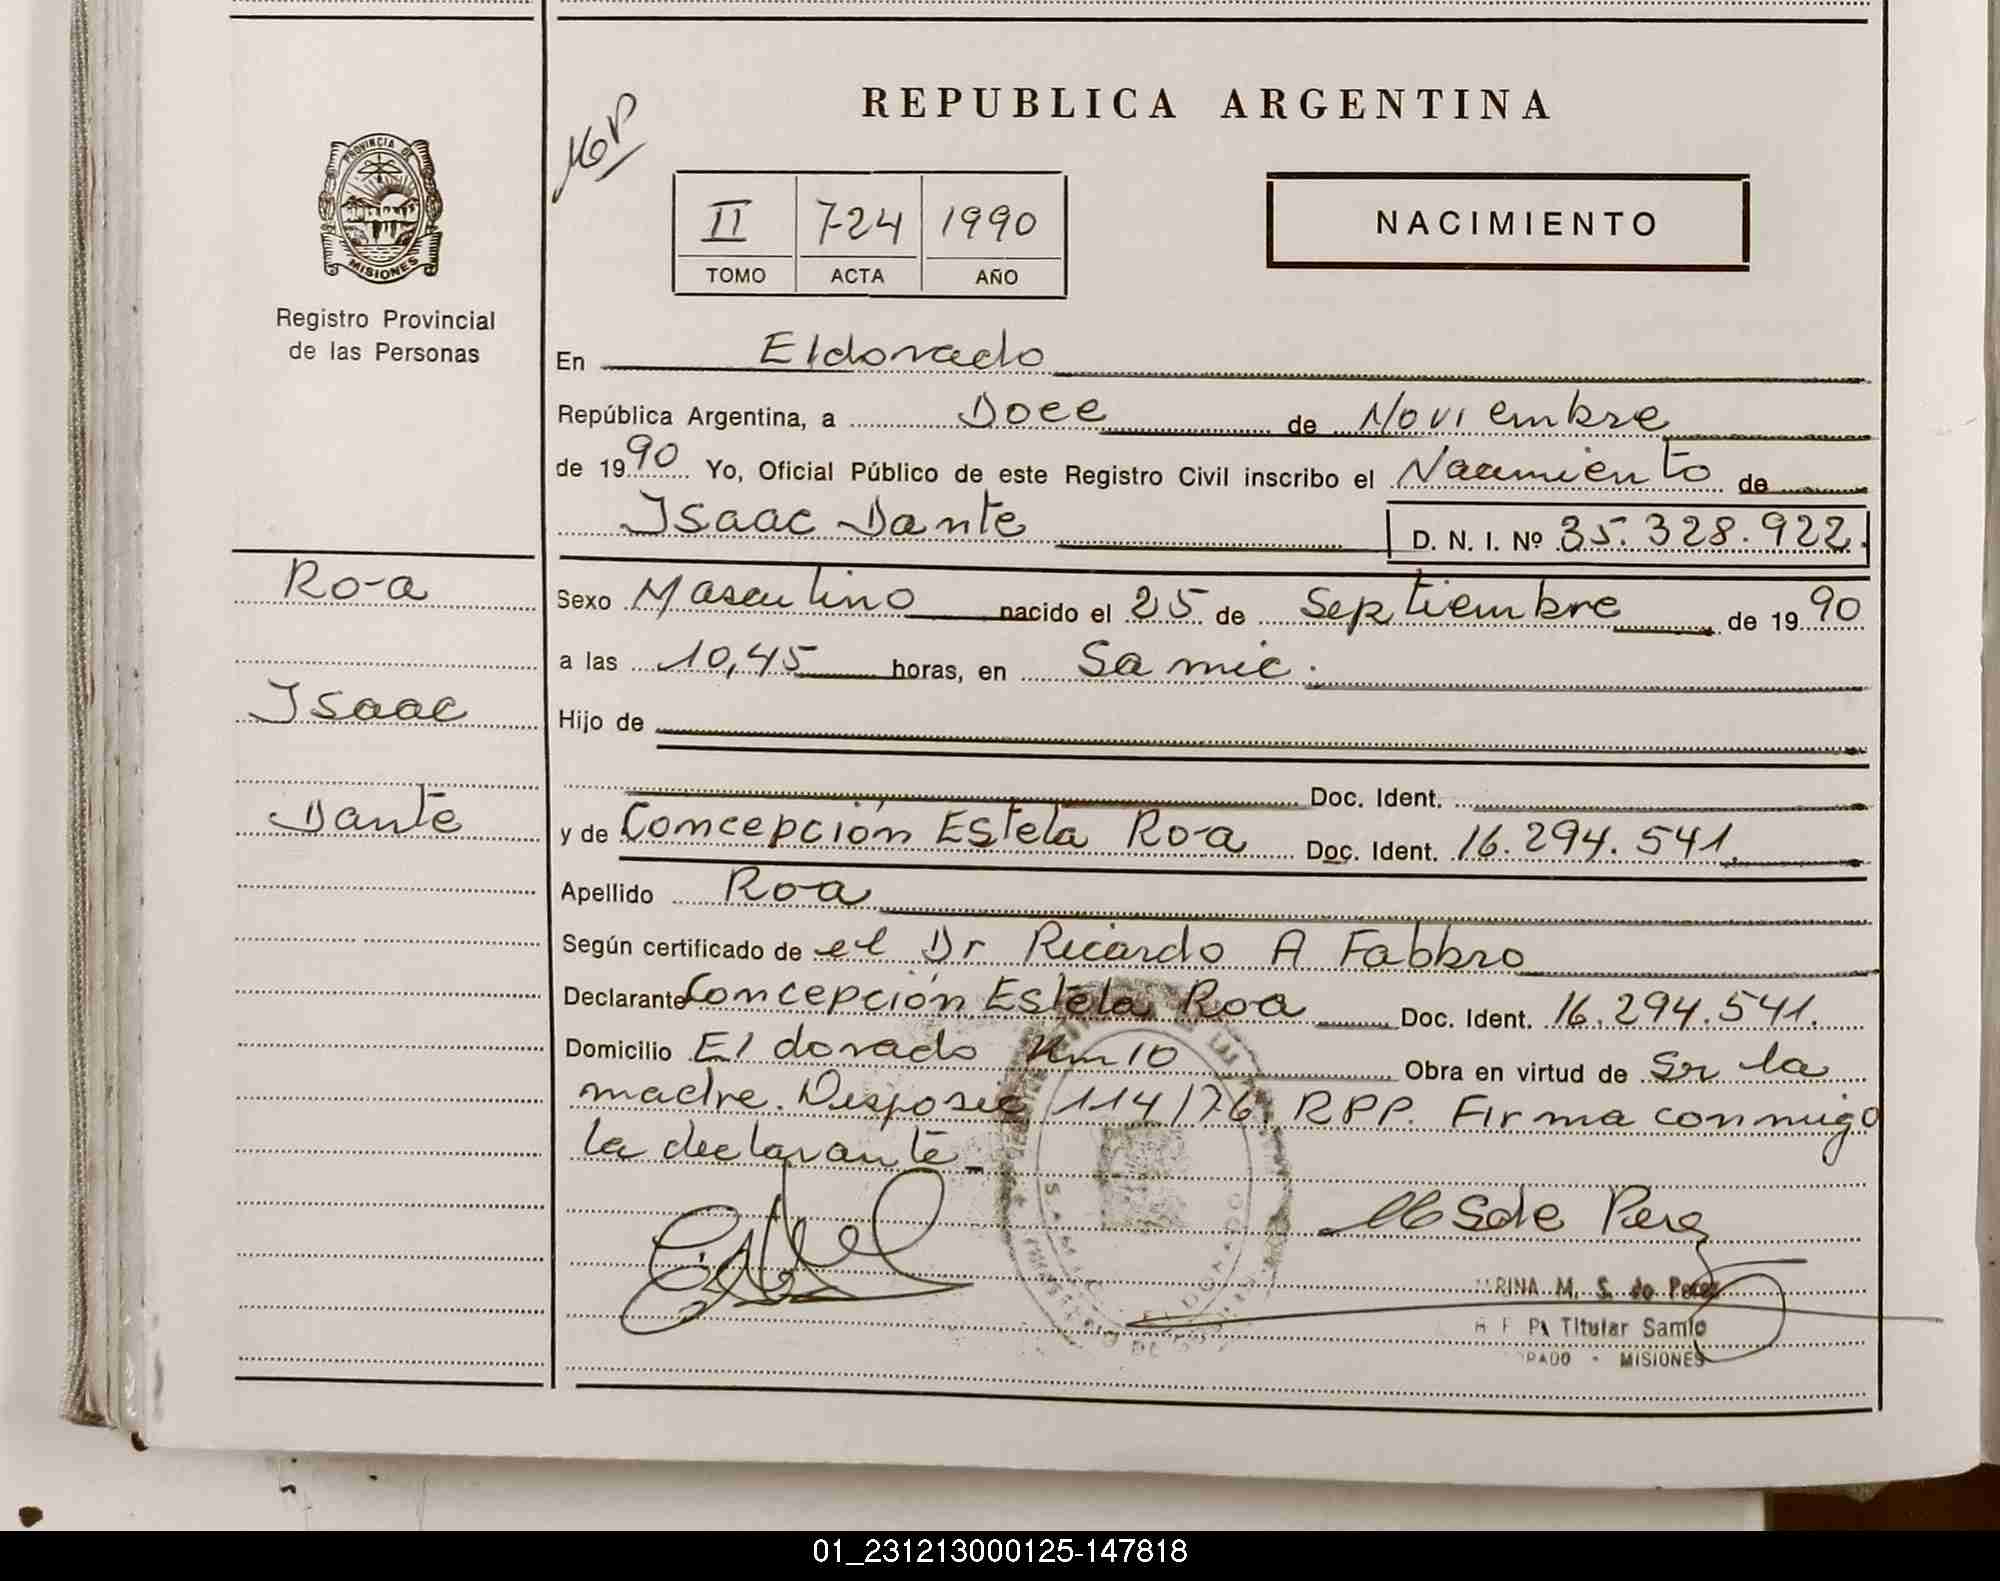 REPUBLICA ARGENTINA
PROVINCIA DE
MISIONES
Registro Provincial
de las Personas
II 724 1990
TOMO ACTA AÑO
NACIMIENTO
En Eldorado
República Argentina, a Doce de Noviembre
de 1990 Yo, Oficial Público de este Registro Civil inscribo el Nacimiento de
Isaac Dante D. N. I. Nº 35.328.922.
Roa
Isaac
Dante
Sexo Masculino nacido el 25 de Septiembre de 1990
a las 10,45 horas, en Samic.
Hijo de
Doc. Ident.
y de Concepción Estela Roa Doc. Ident. 16.294.541.
Apellido Roa
Según certificado de el Dr Ricardo A Fabbro
Declarante Concepción Estela Roa Doc. Ident. 16.294.541.
Domicilio Eldorado Km 10 Obra en virtud de Sr la
madre. Disposic 114/76 RPP. Firma conmigo
la declarante
S de Perez
M. S. de Perez
Titular Samic
MISIONES
01_231213000125-147818